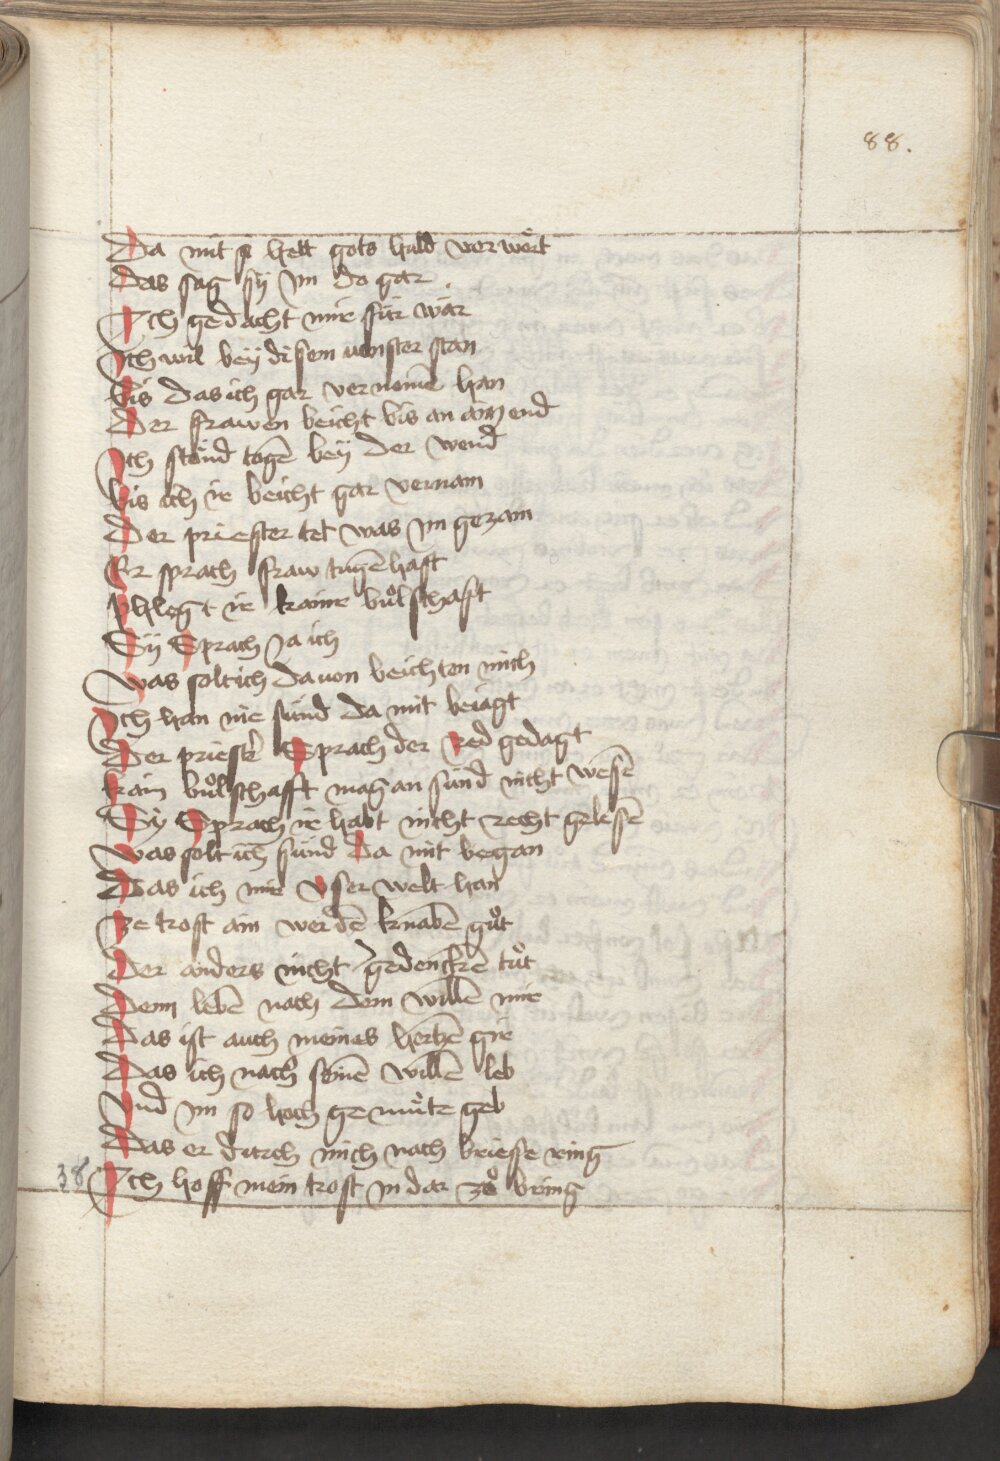 88.
Da mit si hett gots huld verwört
Das sag sÿ im do gar
Ich gedacht mir fúr wár
Ich wil beÿ disem venster stan
Bis das ich gar vernomē han
Der frawen beicht bis an ain end
Ich stönd togē beÿ der wend
bis ich ir beicht gar vernam
Der priester tet was im gezam
Er sprach fraw tugēthaft
Phlegt ir kainr bůlschaft
Sÿ Sprach Ja ich
Was solt ich dauon beichten mich
Ich han nie súnd da mit beiagt
Der priestr̄ Sprach der red gedagt
kain bůlschafft mag an súnd nicht wesē
Sÿ Sprach ir habt nicht recht gelesē
was solt ich súnd da mit began
Das ich mir vser welt han
Ze trost ain werdē knabē gůt
Der anders nicht gedenckē tůt
Denn lebē nach dem willē mir
Das ist auch meines hertzē gir
Das ich nach seinē willē leb
Vnd im so hoch gemúte geb
Das er durch mich nach briesse ring
38 Ich hoff mein trost in dar zů bring